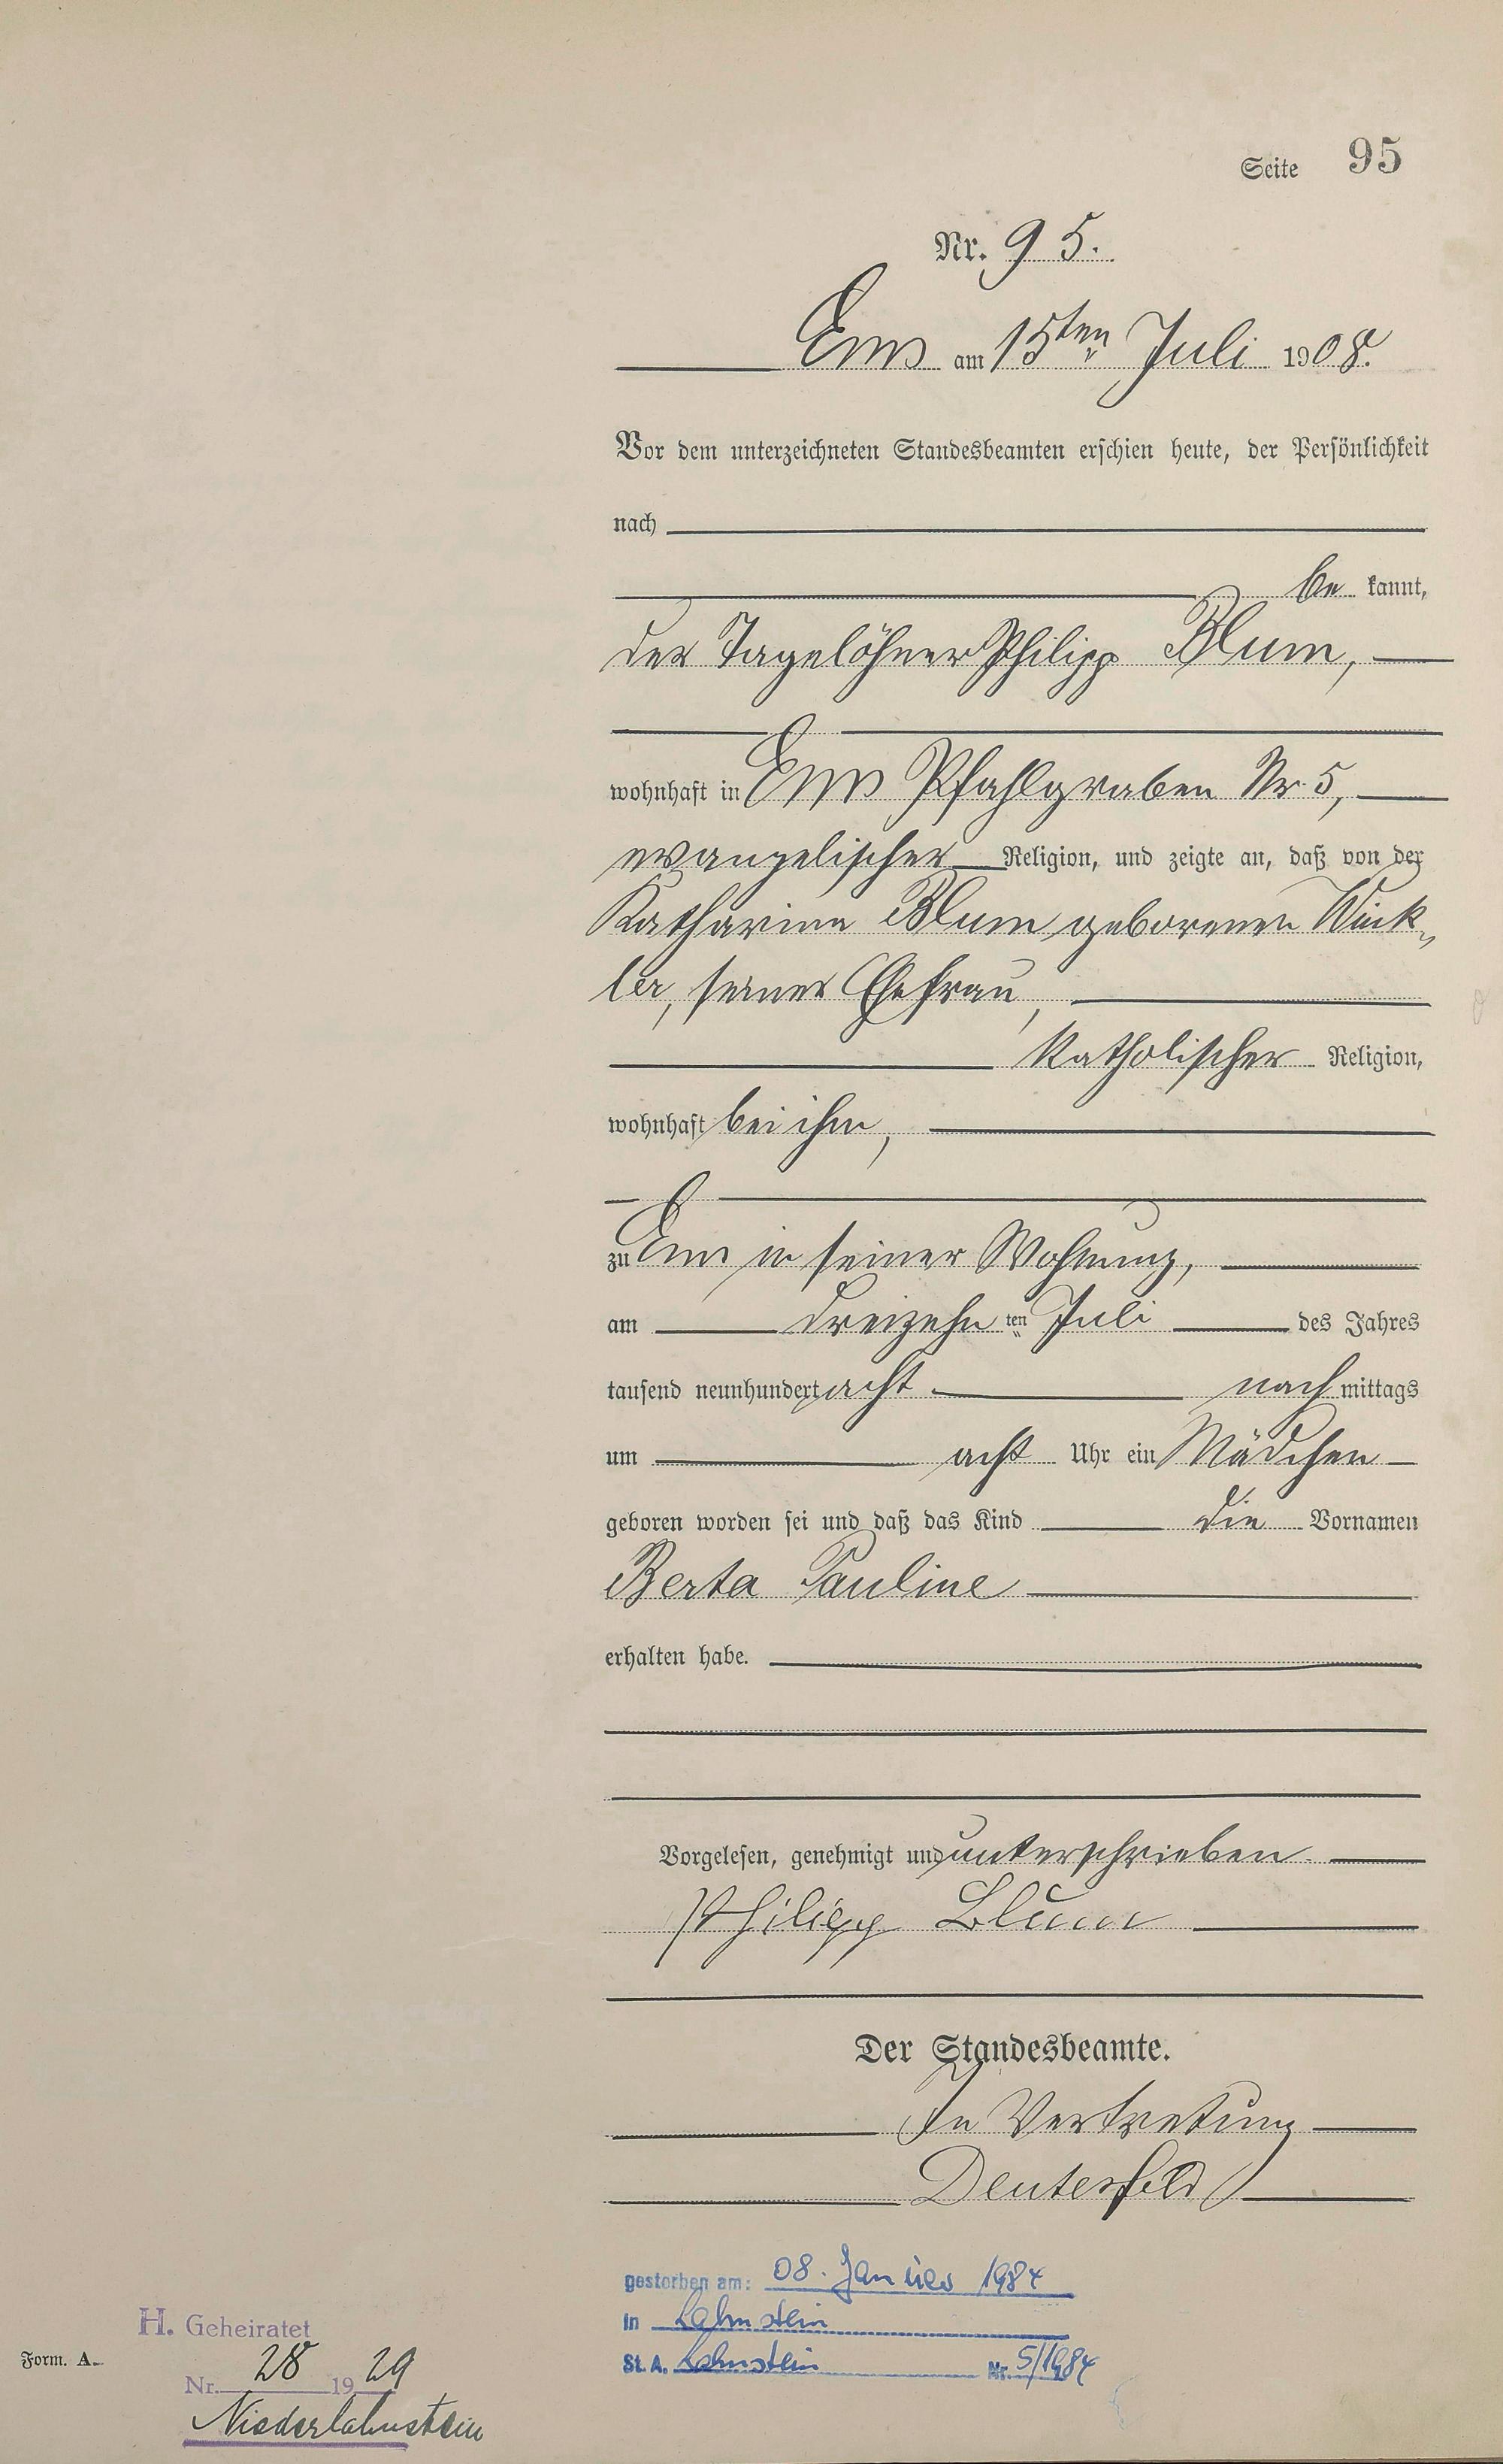 Seite 95
Nr. 95.
Ems am 15ten Juli 1908.
Vor dem unterzeichneten Standesbeamten erschien heute, der Persönlichkeit
nach
be kannt,
der Tagelöhner Philipp Blum,
wohnhaft in Ems Pfahlgraben Nr 5,
evangelischer Religion, und zeigte an, daß von der
Katharina Blum geborenen Wink-
ler, seiner Ehefrau,
katholischer Religion,
wohnhaft bei ihm,
zu Ems in seiner Wohnung,
am dreizehn ten Juli des Jahres
tausend neunhundert acht nach mittags
um acht Uhr ein Mädchen
geboren worden sei und daß das Kind die Vornamen
Berta Pauline
erhalten habe.
Vorgelesen, genehmigt und unterschrieben.
Philipp Blum
Der Standesbeamte.
In Vertretung
Deuterfeld
gestorben am: 08. Januar 1984
in Lahnstein
St. A. Lahnstein Nr. 5/1984
H. Geheiratet
Form. A.
Nr. 28 1929
Niederlahnstein